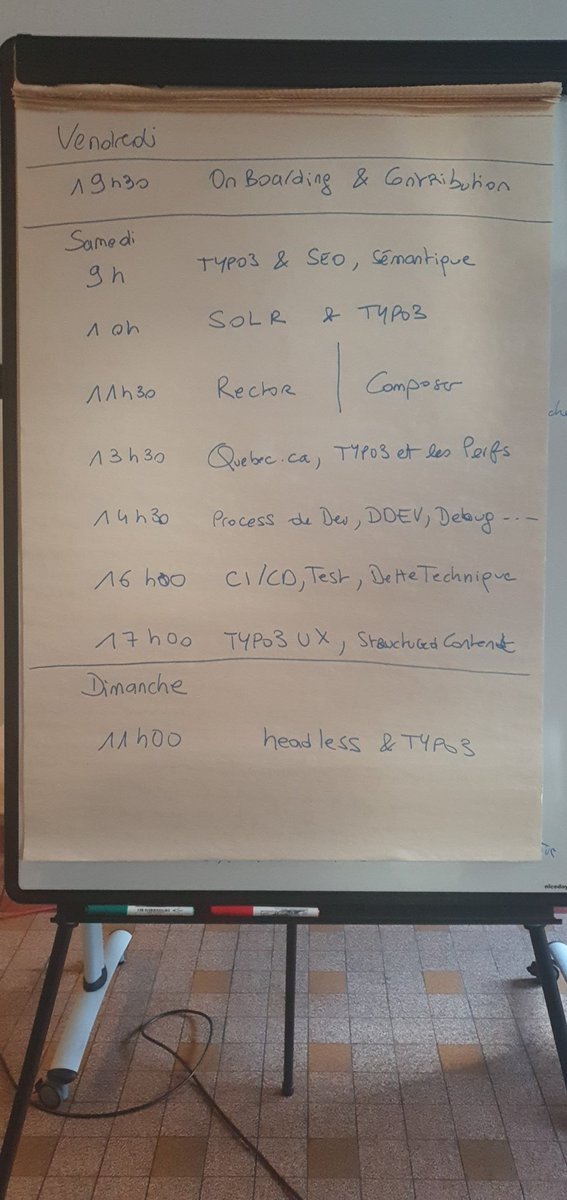 Vendredi
19h30 OnBoarding & Contribution
Samedi
9h TYPO3 & SEO, Sémantique
10h SOLR & TYPO3
11h30 Rector | Composer
13h30 Quebec.ca, TYPO3 et les Perfs
14h30 Process de Dev, DDEV, Debug ---
16h00 CI/CD, Test, Dette Technique
17h00 TYPO3 UX, Structured Content
Dimanche
11h00 headless & TYPO3
niceday